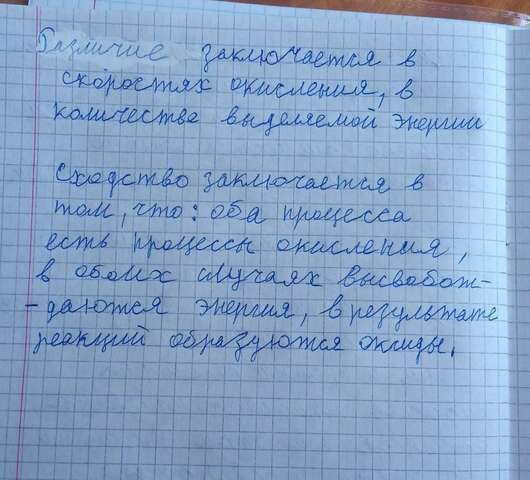 Различие заключается в
скоростях окисления, в
количестве выделяемой энергии
Сходство заключается в
том, что: оба процесса
есть процессы окисления,
в обоих случаях высвобож-
-даются энергия, в результате
реакций образуются оксиды.